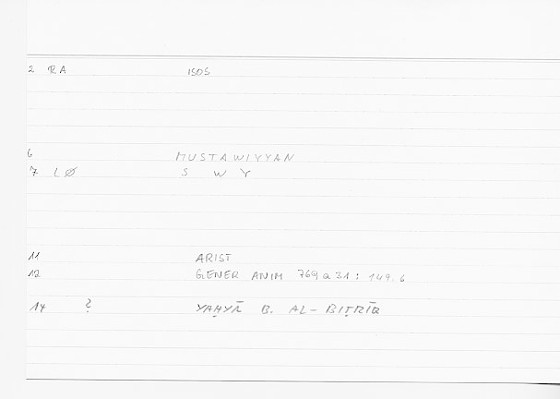 2 RA ISOS
6 MUSTAWIYYAN
7 LØ S W Y
11 ARIST
12 GENER ANIM 769 a 31 : 149.6
14 ? YAḤYĀ B. AL-BIṬRĪQ